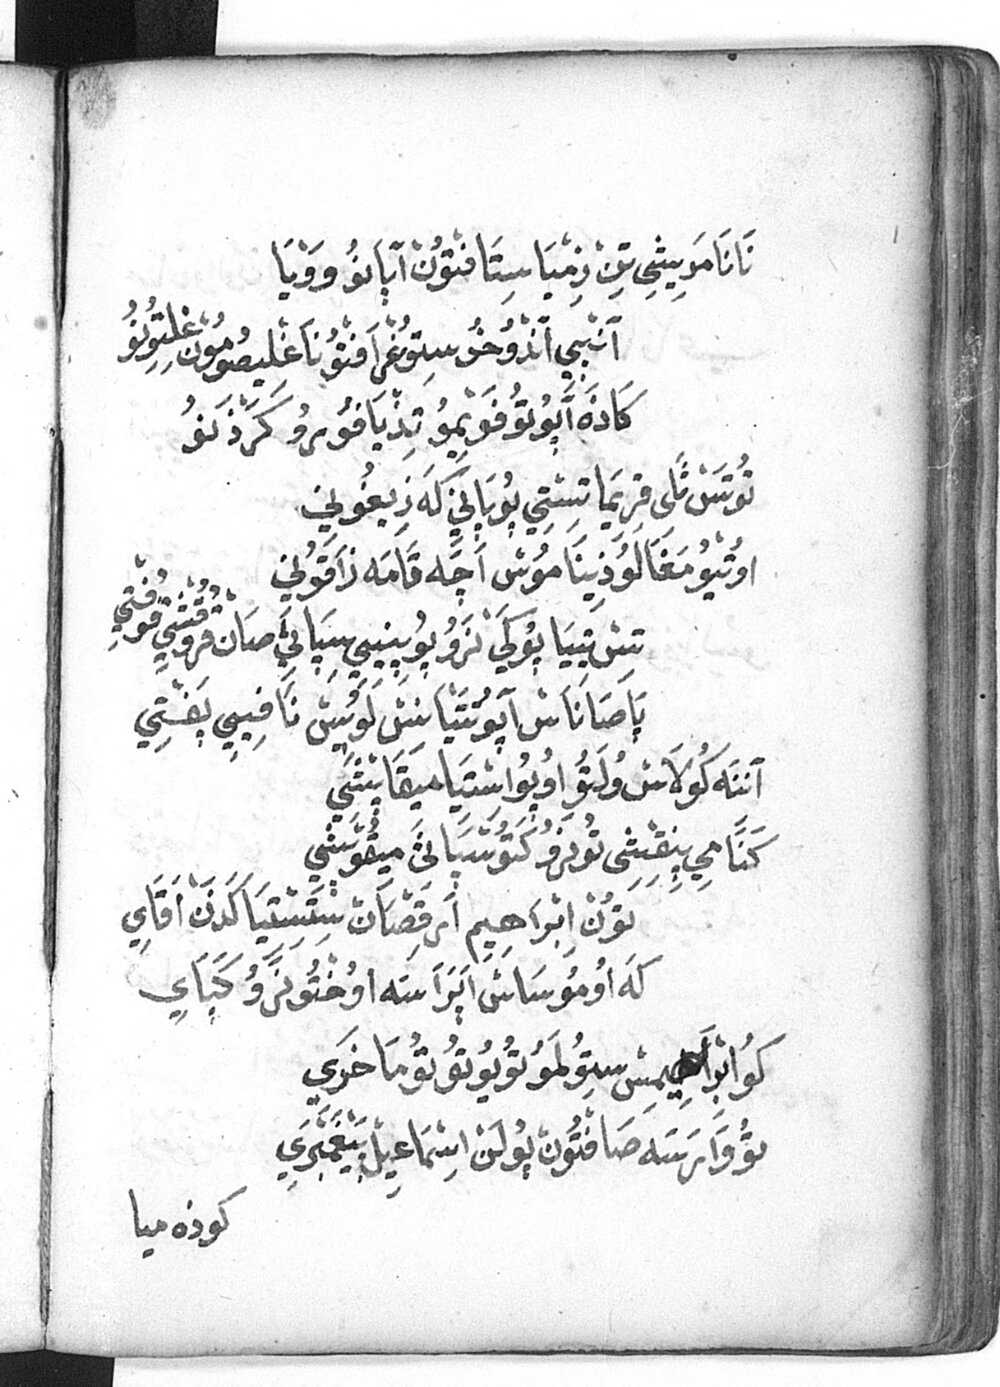 نَانَا مَرِيسْڄِي تِنْ ذِمْيَا سِتَا فْتُونْ آپَانُو وَوْيَا
آنْپِي آنْذُو خُو سِتُوغْرَافْتُو نَا غْلِيصُومُونْ غْلِتُونُو
كَاذَه آپُوتُو فَوْيِمُو تِذْيَا فُورُو كَرَذْلَنُو
تُوتَسْ ثَلَى قِرِيمَا تِسْتِي پُوپَانِي كَه ذِيغُولِي
اوُتْيُو مَغَالُو ذِينَامُوسْ اَچَه قَامَه زَاقُولِي
تِسْ تِپَا پُوكَيْ نَرُو پُوپِينِي سِپَانِي صَانْ فُرُوقْتِي قُوفْتِي
پَاصَانَاسْ آپُوتْيَا سَسْ لَوِيسْ نَافِيِي پَفْتِي
آنَنَه كُولَاسْ وُلَتُو اوُپُوَاسْتِيَا مِيقَايِثْيِ
كَنَا مِي پِنِقْسِي تُونَرُو كَتُوسْپَانِي مِيثُوسْيِي
تُونْ اِبْرَاهِيمْ اَمَرْقِصَانْ سْتِسْتِيَا كَدَنْ اَقَايِ
كَه اوُمُوسَاسِنْ اَپَرَاسَه اوُخْتُو نَرُو كَپَايِ
كُوابْرَاهِيمِسْ سِتُولَمُوتُويُوتُوتُو مَاخَرِي
تُووَارَسَه صَافْتُونْ پُولَنْ اِسْمَاعِيلْ پَيْغَمْبَرِي
كوذه ميا